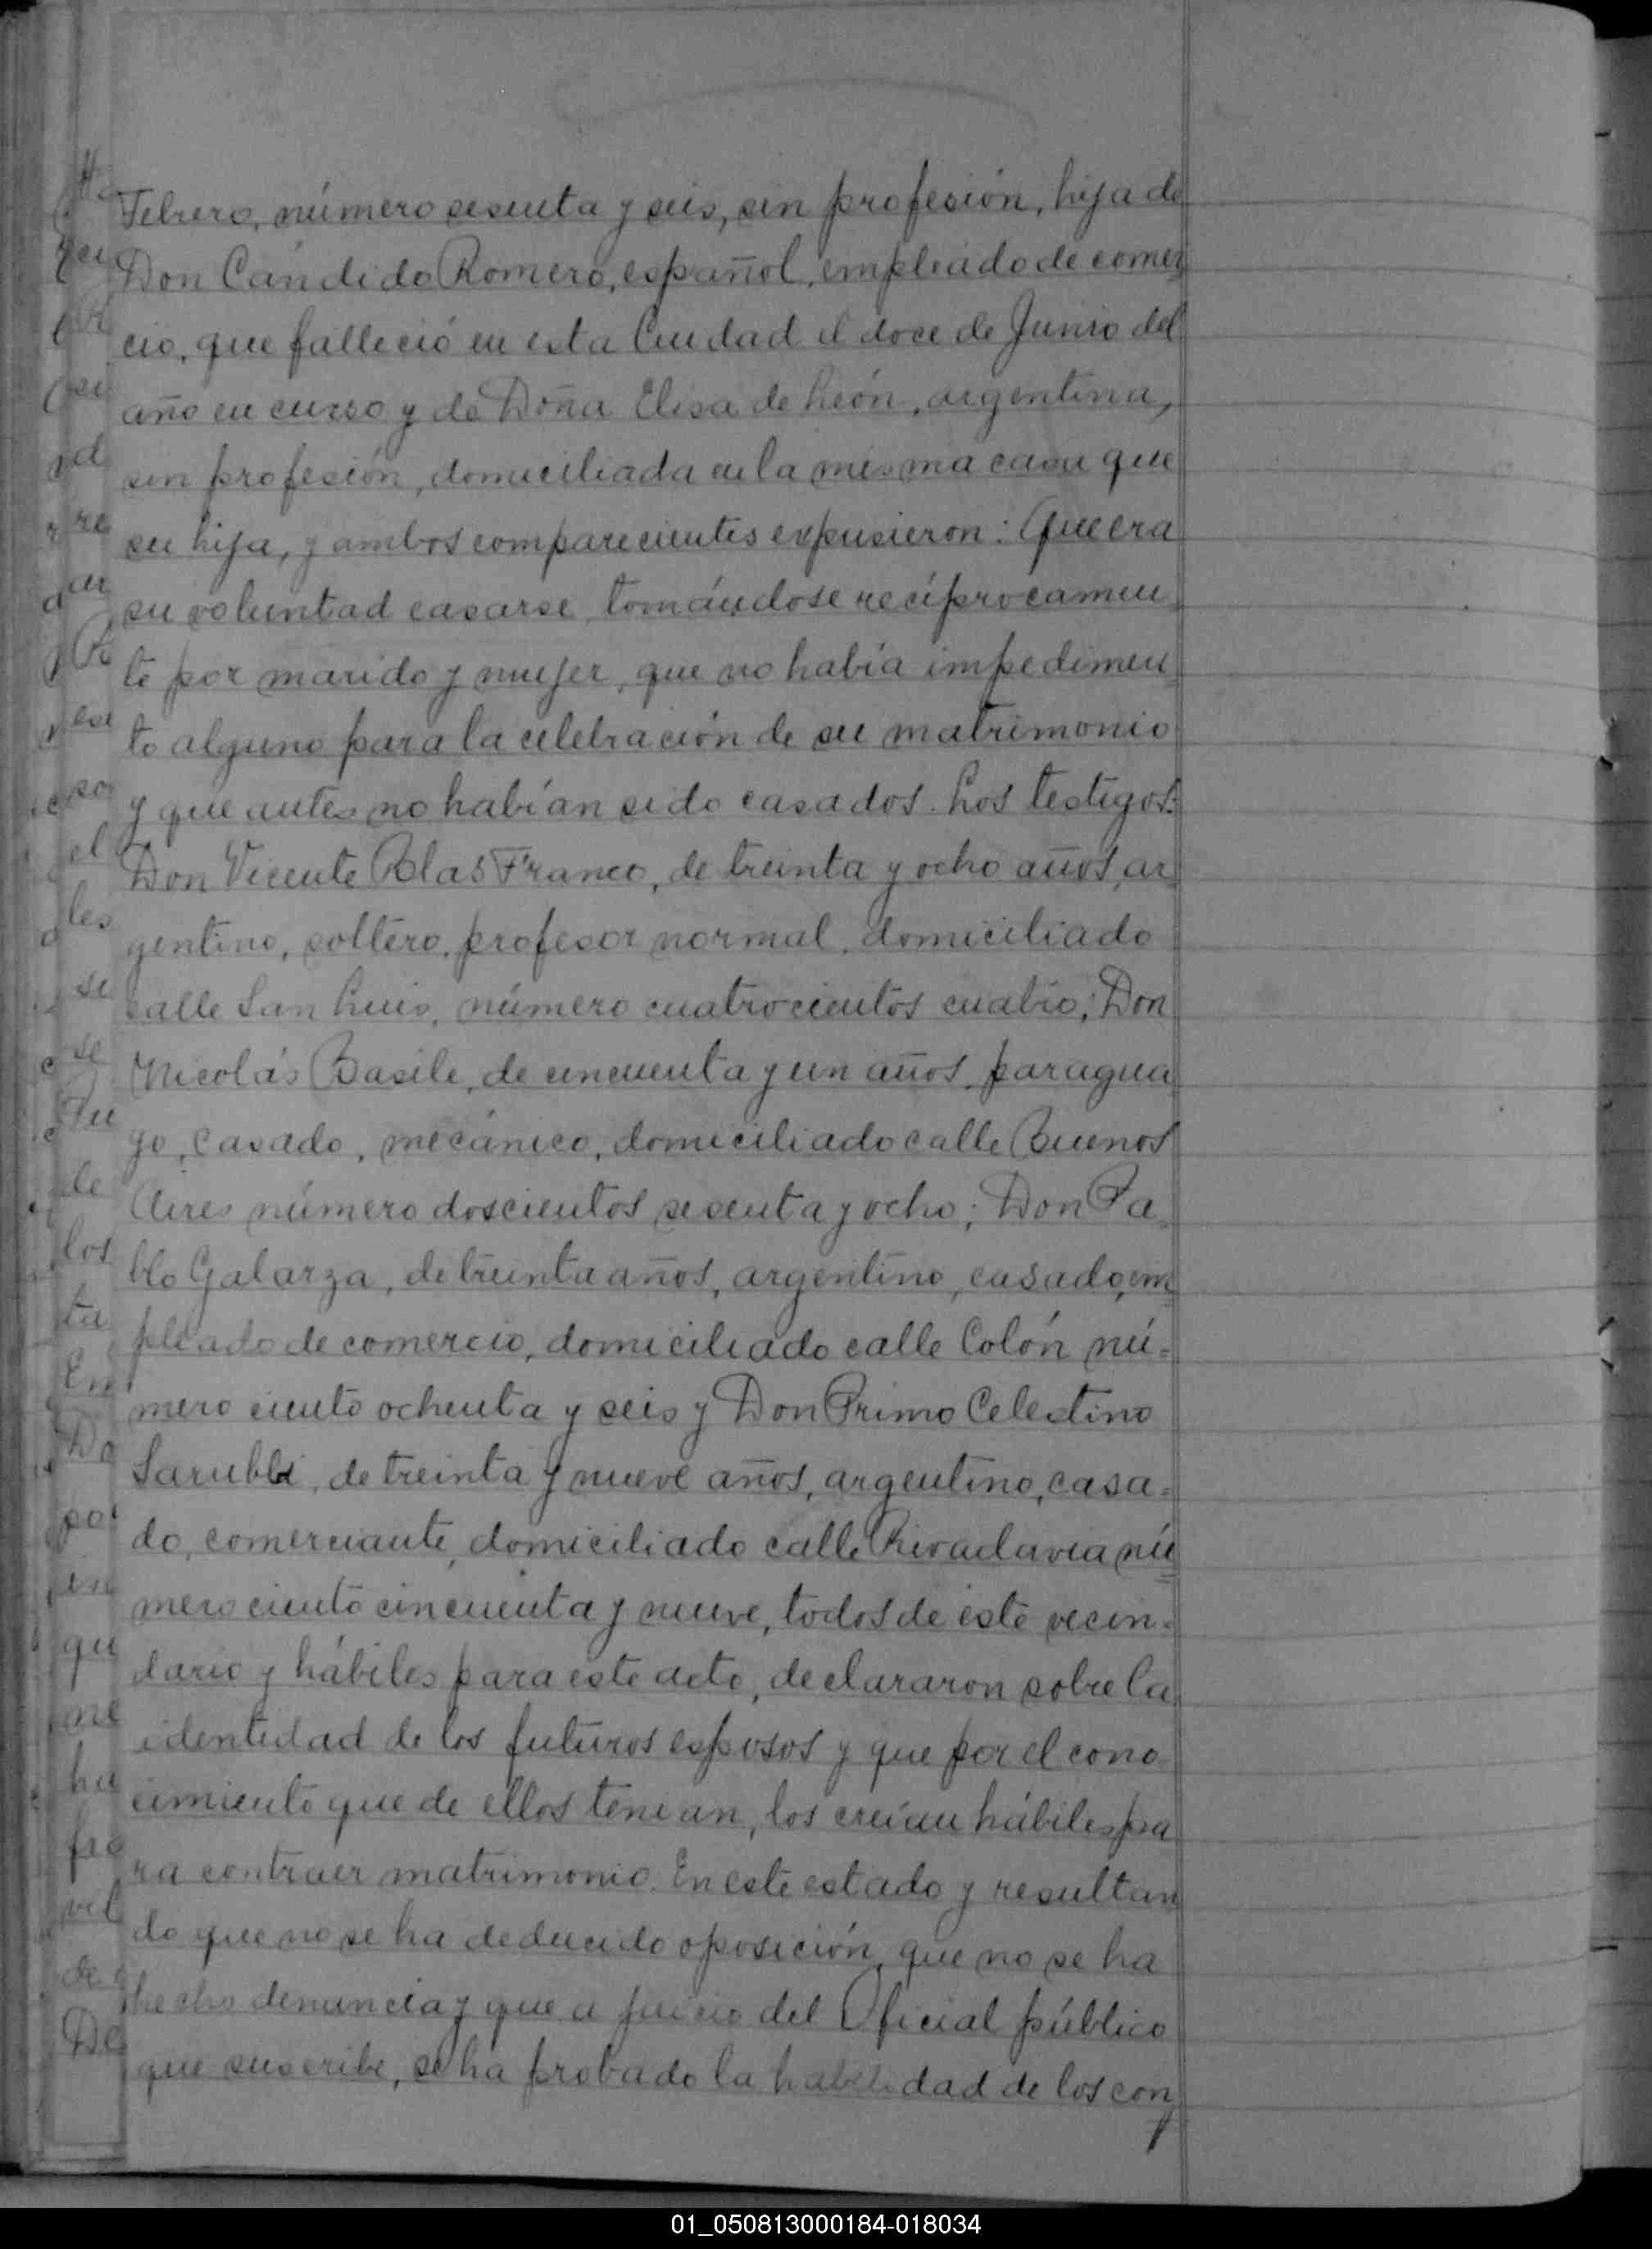 Febrero, número sesenta y seis, sin profesión, hija de
Don Cándido Romero, español, empleado de comer
cio, que falleció en esta Ciudad el doce de Junio del
año en curso y de Doña Elisa de León, argentina,
sin profesión, domiciliada en la misma casa que
su hija, y ambos comparecientes expusieron: Que era
su voluntad casarse tomándose recíprocamen
te por marido y mujer, que no había impedimen
to alguno para la celebración de su matrimonio
y que antes no habían sido casados. Los testigos:
Don Vicente Blas Franco, de treinta y ocho años, ar
gentino, soltero, profesor normal, domiciliado
calle San Luis, número cuatrocientos cuatro; Don
Nicolás Basile, de cincuenta y un años, paragua
yo, casado, mecánico, domiciliado calle Buenos
Aires número doscientos sesenta y ocho; Don Pa
blo Galarza, de treinta años, argentino, casado, em
pleado de comercio, domiciliado calle Colón nú=
mero ciento ochenta y seis y Don Primo Celestino
Sarubbi, de treinta y nueve años, argentino, casa=
do, comerciante, domiciliado calle Rivadavia nú
mero ciento cincuenta y nueve, todos de este vecin=
dario y hábiles para este acto, declararon sobre la
identidad de los futuros esposos y que por el cono
cimiento que de ellos tenían, los creían hábiles pa
ra contraer matrimonio. En este estado y resultan
do que no se ha deducido oposición, que no se ha
hecho denuncia y que a juicio del Oficial público
que suscribe, se ha probado la habilidad de los con
01_050813000184-018034